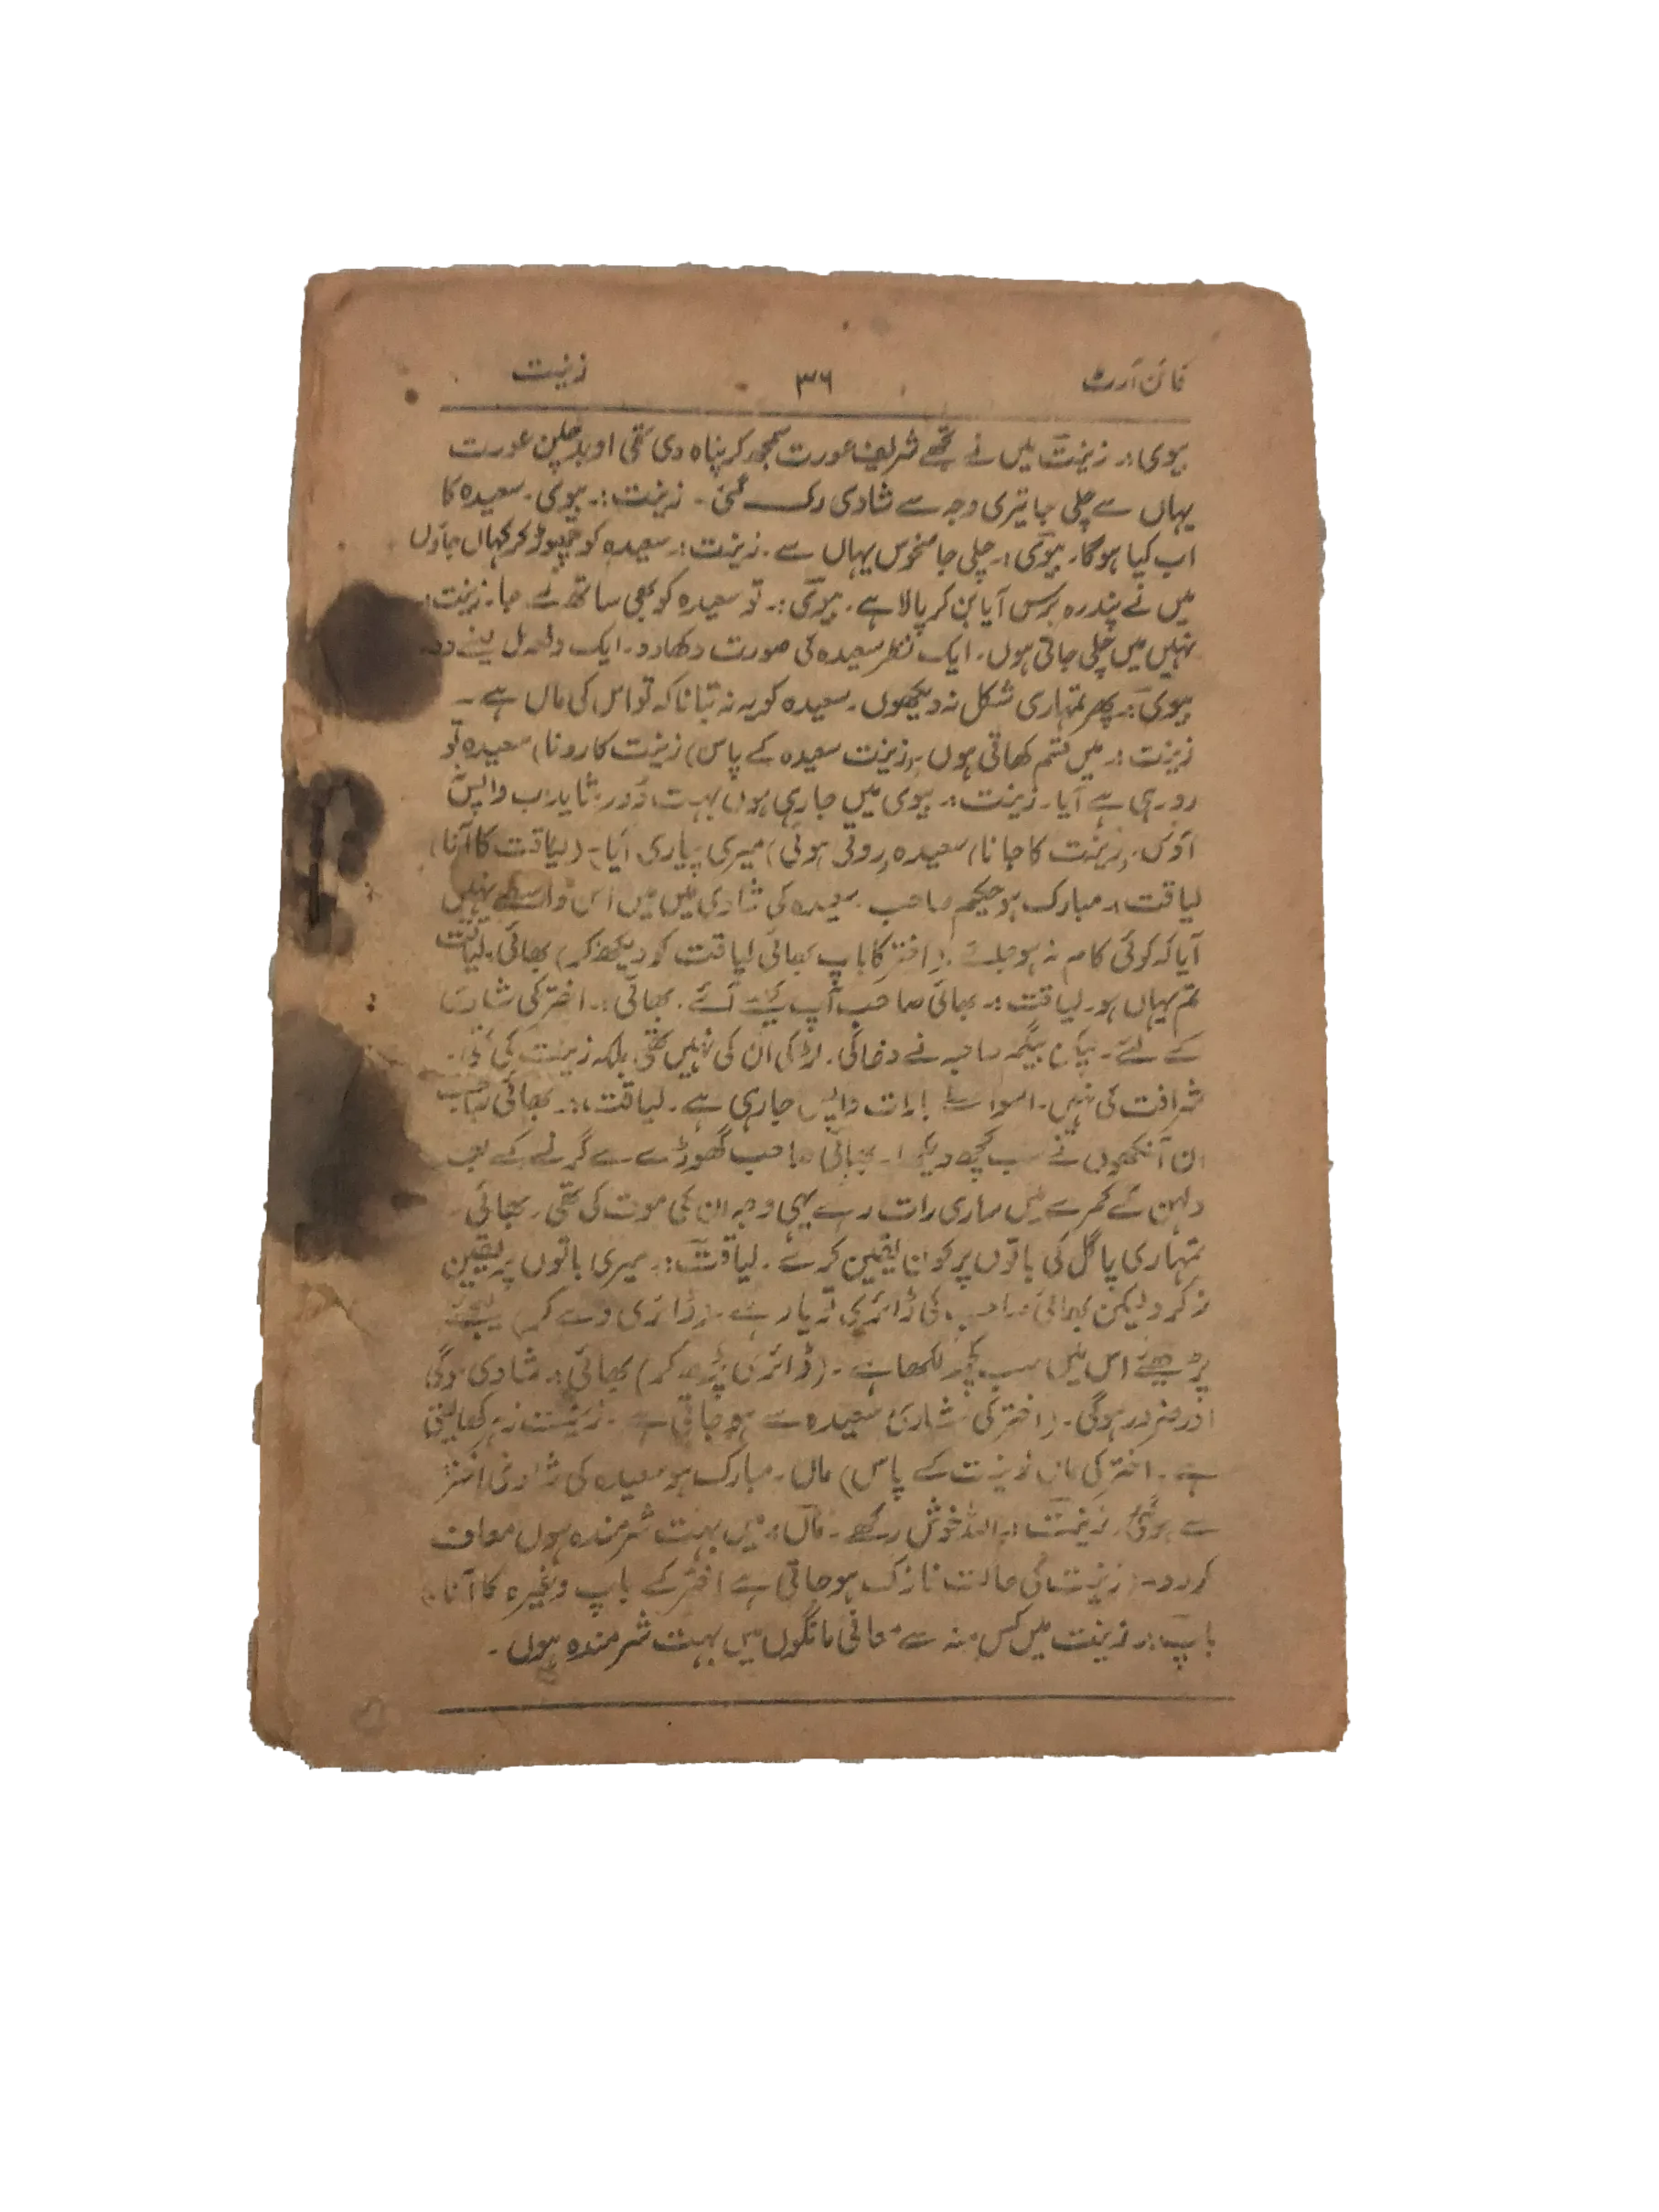 فائن آرٹ ۳۶ زینت
بیوی:۔ زینت میں نے تجھے شریف عورت سمجھ کر پناہ دی تھی او بدچلن عورت
یہاں سے چلی جا تیری وجہ سے شادی رک گئی۔ زینت:۔ بیوی۔ سعیدہ کا
اب کیا ہوگا۔ بیوی:۔ چلی جا منحوس یہاں سے۔ زینت:۔ سعیدہ کو چھوڑ کر کہاں جاؤں
میں نے پندرہ برس آیا بن کر پالا ہے۔ بیوی:۔ تو سعیدہ کو بھی ساتھ لے جا۔ زینت:۔
نہیں میں چلی جاتی ہوں۔ ایک نظر سعیدہ کی صورت دکھا دو۔ ایک دفعہ مل لینے دو۔
بیوی:۔ پھر تمہاری شکل نہ دیکھوں۔ سعیدہ کو یہ نہ بتانا کہ تو اس کی ماں ہے۔
زینت:۔ میں قسم کھاتی ہوں۔ (زینت سعیدہ کے پاس) زینت کا رونا) سعیدہ تو
رو رہی ہے آیا۔ زینت:۔ بیوی میں جا رہی ہوں بہت دور شاید اب واپس
آؤں۔ (زینت کا جانا) سعیدہ (روتی ہوئی) میری پیاری آیا۔ (لیاقت کا آنا)
لیاقت:۔ مبارک ہو حکیم صاحب۔ سعیدہ کی شادی میں میں اس واسطے نہیں
آیا کہ کوئی کام نہ ہو جائے۔ (اختر کا باپ بھائی لیاقت کو دیکھ کر) بھائی۔ لیاقت
تم یہاں ہو۔ لیاقت:۔ بھائی صاحب آپ کیسے آئے۔ بھائی:۔ اختر کی شادی
کے لئے۔ لیکن بیگم صاحبہ نے دغا کی۔ لڑکی ان کی نہیں تھی بلکہ زینت کی
شرافت کی نہیں۔ اسواسطے بارات واپس جا رہی ہے۔ لیاقت:۔ بھائی صاحب
ان آنکھوں نے سب کچھ دیکھا۔ بھائی صاحب گھوڑے سے گرنے کے بعد
دلہن کے کمرے میں ساری رات رہے یہی وجہ ان کی موت کی تھی۔ بھائی۔
تمہاری پاگل کی باتوں پر کون یقین کرے۔ لیاقت:۔ میری باتوں پر یقین
نہ کرو لیکن بھائی صاحب کی ڈائری تو یار ہے۔ (ڈائری دے کر) لیجئے
پڑھئے اس میں سب کچھ لکھا ہے۔ (ڈائری پڑھ کر) بھائی:۔ شادی ہوگی
اور ضرور ہوگی۔ (اختر کی شادی سعیدہ سے ہو جاتی ہے۔ زینت زہر کھا لیتی
ہے۔ اختر کی ماں زینت کے پاس) ماں۔ مبارک ہو سعیدہ کی شادی اختر
سے ہو گئی۔ زینت:۔ اللہ خوش رکھے۔ ماں:۔ میں بہت شرمندہ ہوں معاف
کر دو۔ (زینت کی حالت نازک ہو جاتی ہے اختر کے باپ وغیرہ کا آنا۔)
باپ:۔ زینت میں کس منہ سے معافی مانگوں میں بہت شرمندہ ہوں۔